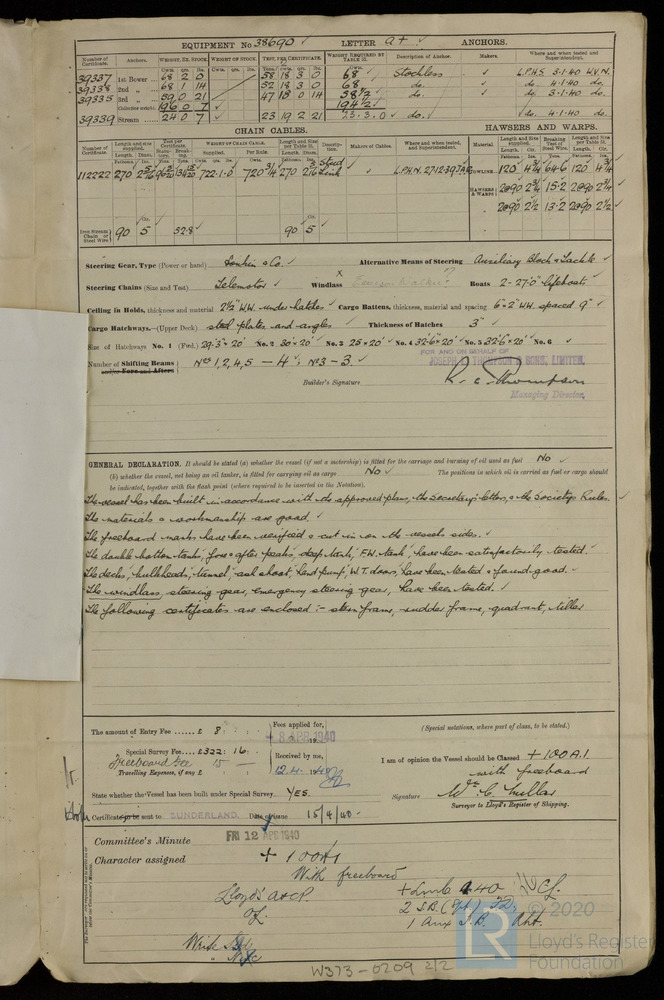 EQUIPMENT No 38690 LETTER a† ANCHORS.
Number of Certificate. Anchors. WEIGHT, EX. STOCK. WEIGHT OF STOCK. TEST, PER CERTIFICATE. WEIGHT REQUIRED BY TABLE 31. Description of Anchor. Makers. Where and when tested and Superintendent.
39337 1st Bower 68 2 0 58 18 3 0 68 Stockless L.P.H.S. 3.1.40 W.V.N.
39338 2nd 68 1 14 52 18 3 0 68 do. do. 4.1.40 do.
39335 3rd 59 0 21 47 18 0 14 58½ do. do. 3.1.40 do.
Collective weight 196 0 7 194½
39339 Stream 24 0 7 23 19 2 21 23.3.0 do. do. 4.1.40 do.
CHAIN CABLES. HAWSERS AND WARPS.
Number of Certificate. Length and size supplied. Test per Certificate. WEIGHT OF CHAIN CABLE. Length and size per Table 31. Description. Makers of Cables. Where and when tested, and Superintendent. Material. Length and Size supplied. Breaking Test of Steel Wire. Length and Size per Table 31.
112222 270 2 5/16 722.1.0 720¾ 270 2 5/16 Stud Link L.P.H.N. 27.12.39 TOWLINE 120 4¾ 64.6 120 4¾
HAWSERS & WARPS 2@90 2¾ 15.2 2@90 2¾
2@90 2½ 13.2 2@90 2½
Iron Stream Chain or Steel Wire 90 5 32.8 90 5
Steering Gear, Type (Power or hand) Donkin & Co. Alternative Means of Steering Auxiliary Block & Tackle
Steering Chains (Size and Test) Telemotor Windlass Boats 2-27'.0" lifeboats
Ceiling in Holds, thickness and material 2½" W.W. under hatches Cargo Battens, thickness, material and spacing 6"×2" W.W. spaced 9"
Cargo Hatchways.—(Upper Deck) steel plates and angles Thickness of Hatches 3"
Size of Hatchways No. 1 (Fwd.) 29'.3"×20' No. 2 30'×20' No. 3 25'×20' No. 4 32'.6"×20' No. 5 32'.6"×20' No. 6
Number of Shifting Beams and/or Fore and Afters Nos 1, 2, 4, 5 — 4; No 3 — 3.
FOR AND ON BEHALF OF
JOSEPH L. THOMPSON & SONS, LIMITED,
Builder's Signature R. C. Thompson
Managing Director.
GENERAL DECLARATION. It should be stated (a) whether the vessel (if not a motorship) is fitted for the carriage and burning of oil used as fuel No
(b) whether the vessel, not being an oil tanker, is fitted for carrying oil as cargo No The positions in which oil is carried as fuel or cargo should
be indicated, together with the flash point (where required to be inserted in the Notation).
The vessel has been built in accordance with the approved plans, the Secretary's letters, & the Society's Rules.
The materials & workmanship are good.
The freeboard marks have been verified & cut in on the vessel's sides.
The double bottom tanks, fore & after peaks, deep tank, F.W. tank, have been satisfactorily tested.
The decks, bulkheads, tunnel, ash shoot, hand pump, W.T. doors, have been tested & found good.
The windlass, steering gear, emergency steering gear, have been tested.
The following certificates are enclosed :- stern frame, rudder frame, quadrant, tiller
The amount of Entry Fee ...... £ 8 : : Fees applied for, 8 APR 1940
Special Survey Fee.... £322 : 16 : Received by me,
Freeboard Fee 15 —
Travelling Expenses, if any £ 12.4.1940
(Special notations, where part of class, to be stated.)
I am of opinion the Vessel should be Classed + 100 A.1.
with freeboard
State whether the Vessel has been built under Special Survey. YES.
Signature Wm. C. Miller
Surveyor to Lloyd's Register of Shipping.
Certificate to be sent to SUNDERLAND. Date of issue 15/4/40.
Committee's Minute FRI 12 APR 1940
Character assigned + 100A1
With freeboard
Lloyd's A&CP + LMC 4.40 CL.
2 S.B. (Spt)
1 Aux S.B.
Write
W373-0209 2/2
© 2020
LR
Lloyd's Register
Foundation